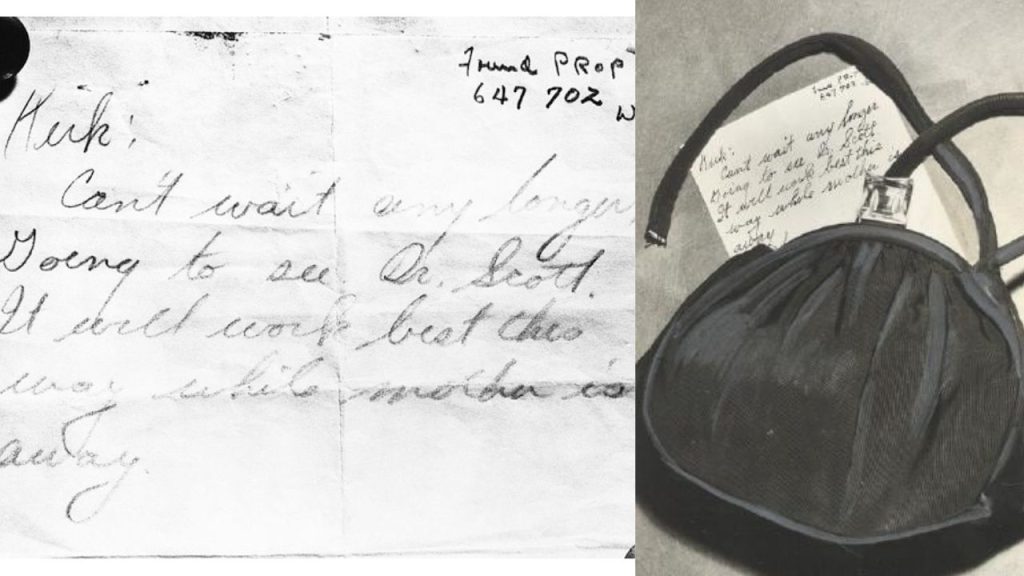 Found PROP
647 702
W
Kirk:
Can't wait any longer
Going to see Dr. Scott.
It will work best this
way while mother is
away.
Found PR
647 702
Kirk:
Can't wait any longer
Going to see Dr Scott
It will work best this
way while mother is
away,